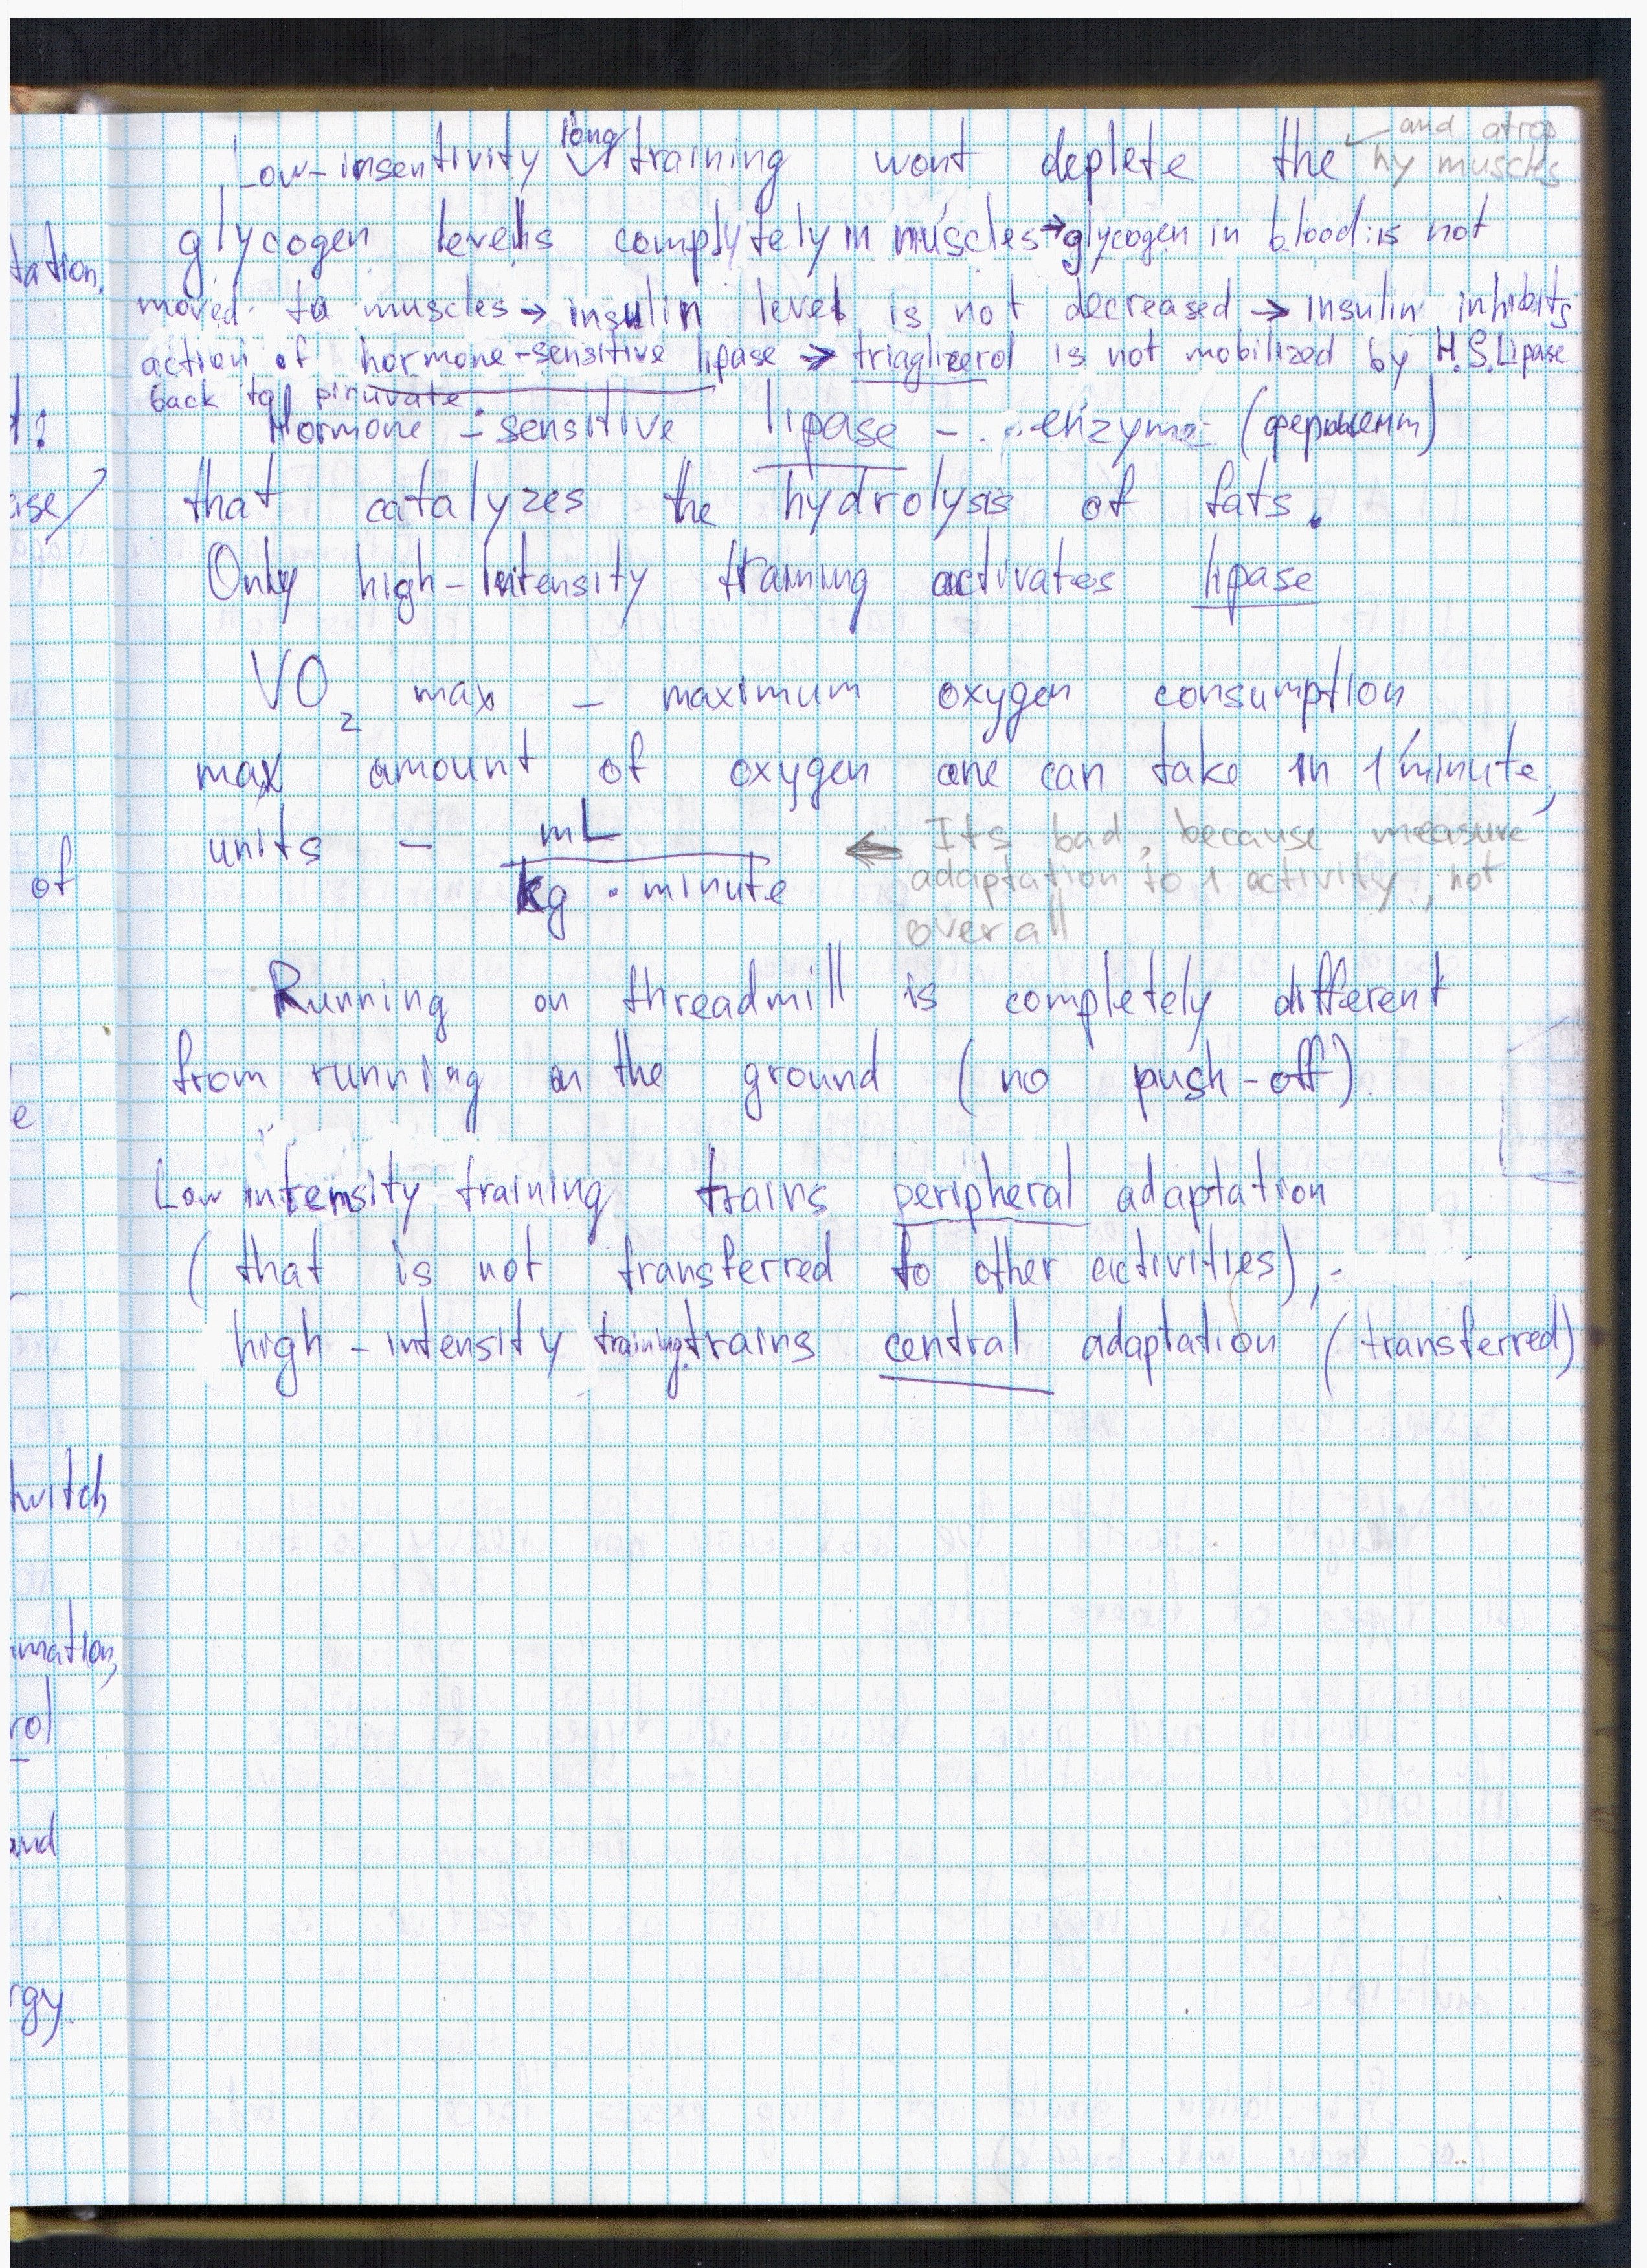 Low-insentivity long training wont deplete the and atrop
hy muscles
glycogen levells complytely in muscles → glycogen in blood is not
moved to muscles → insulin level is not decreased → insulin inhibits
action of hormone-sensitive lipase → triaglizerol is not mobilized by H.S.Lipase
back to piruvate.
Hormone-sensitive lipase - enzyme (фермент)
that catalyzes the hydrolysis of fats.
Only high-intensity training activates lipase
VO2 max - maximum oxygen consumption
max amount of oxygen one can take in 1 minute,
units - mL
kg · minute
← Its bad, because measure
adaptation to 1 activity, not
overall
Running on threadmill is completely different
from running on the ground (no push-off).
Low intensity training trains peripheral adaptation
(that is not transferred to other activities),
high-intensity training trains central adaptation (transferred)
tation,
of
twitch,
and